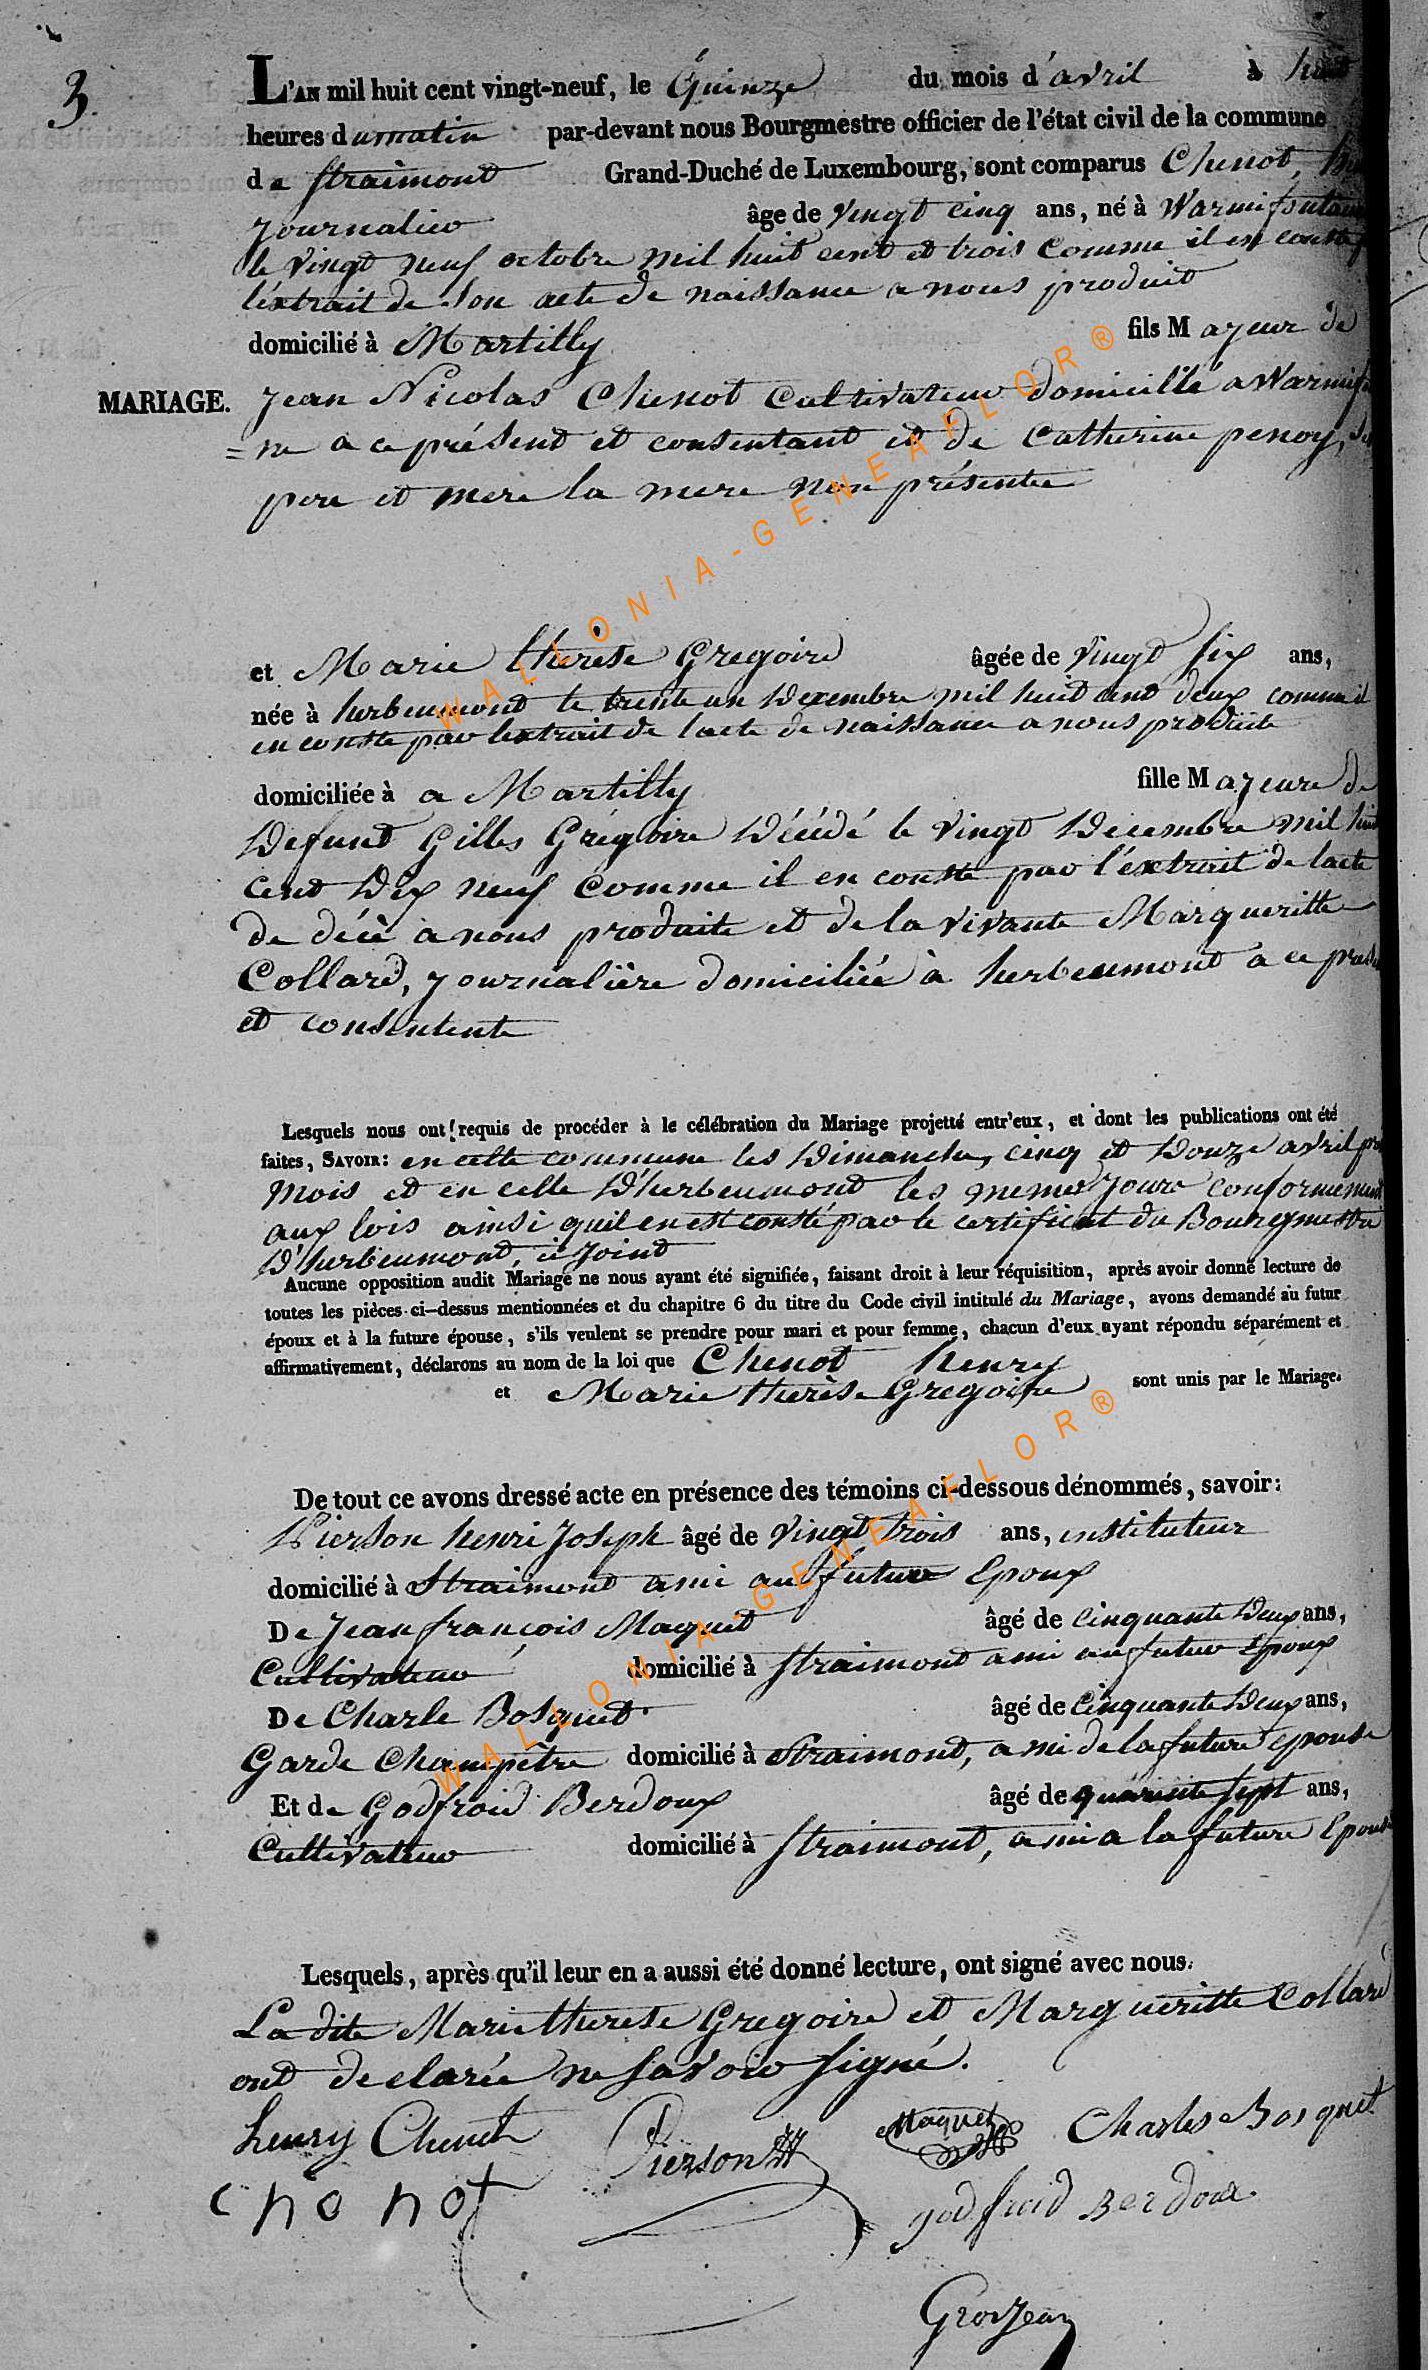 3.
L'AN mil huit cent vingt-neuf, le Quinze du mois d'avril à huit
heures du matin par-devant nous Bourgmestre officier de l'état civil de la commune
de Straimont Grand-Duché de Luxembourg, sont comparus Chenot,
journalier âge de vingt cinq ans, né à Warmifontaine
le vingt neuf octobre mil huit cent et trois comme il en conste
l'extrait de son acte de naissance a nous produit
domicilié à Martilly fils Majeur de
MARIAGE. Jean Nicolas Chenot Cultivateur domicillé a Warmifo
= ne a ce présent et consentant et de Catherine penoy,
pere et mere la mere non présente
et Marie therese Gregoire âgée de vingt six ans,
née à herbeumont le trente un Decembre mil huit cent deux comme il
en conste par lextrait de lacte de naissance a nous produite
domiciliée à a Martilly fille Majeure de
Defunt Gilles Grégoire Décédé le vingt Decembre mil huit
cent Dix neuf comme il en conste par l'éxtrait de lacte
de décè a nous produite et de la vivante Margueritte
Collard, journalière domiciliée à herbeumont a ce prese
et consentente
Lesquels nous ont requis de procéder à le célébration du Mariage projetté entr'eux, et dont les publications ont été
faites, SAVOIR: en cette commune les Dimanches cinq et Douze avril
mois et en celle D'herbeumont les memes jours conformement
aux lois ainsi quil en est consté par le certificat du Bourgmestre
D'herbeumont, ci joint
Aucune opposition audit Mariage ne nous ayant été signifiée, faisant droit à leur réquisition, après avoir donné lecture de
toutes les pièces ci-dessus mentionnées et du chapitre 6 du titre du Code civil intitulé du Mariage, avons demandé au futur
époux et à la future épouse, s'ils veulent se prendre pour mari et pour femme, chacun d'eux ayant répondu séparément et
affirmativement, déclarons au nom de la loi que Chenot henry
et Marie therèse Gregoire sont unis par le Mariage.
De tout ce avons dressé acte en présence des témoins ci-dessous dénommés, savoir:
Pierson henri Joseph âgé de vingt trois ans, instituteur
domicilié à Straimont ami au futur Epoux
De Jean françois Maquet âgé de cinquante Deux ans,
Cultivateur domicilié à Straimont ami au futur Epoux
De Charle Bosquet âgé de Cinquante Deux ans,
Garde Champètre domicilié à Straimont, ami de la future epouse
Et de Godfroid Berdoux âgé de quarante sept ans,
Cultivateur domicilié à Straimont, ami a la future Epouse
Lesquels, après qu'il leur en a aussi été donné lecture, ont signé avec nous.
La dite Marie therese Gregoire et Margueritte Collard
ont declarée ne savoir signé.
henry Chenot Pierson Maquet Charles Bosquet
chonot godfroid Berdoux
Grosjean
WALLONIA-GENEAFLOR®
WALLONIA-GENEAFLOR®